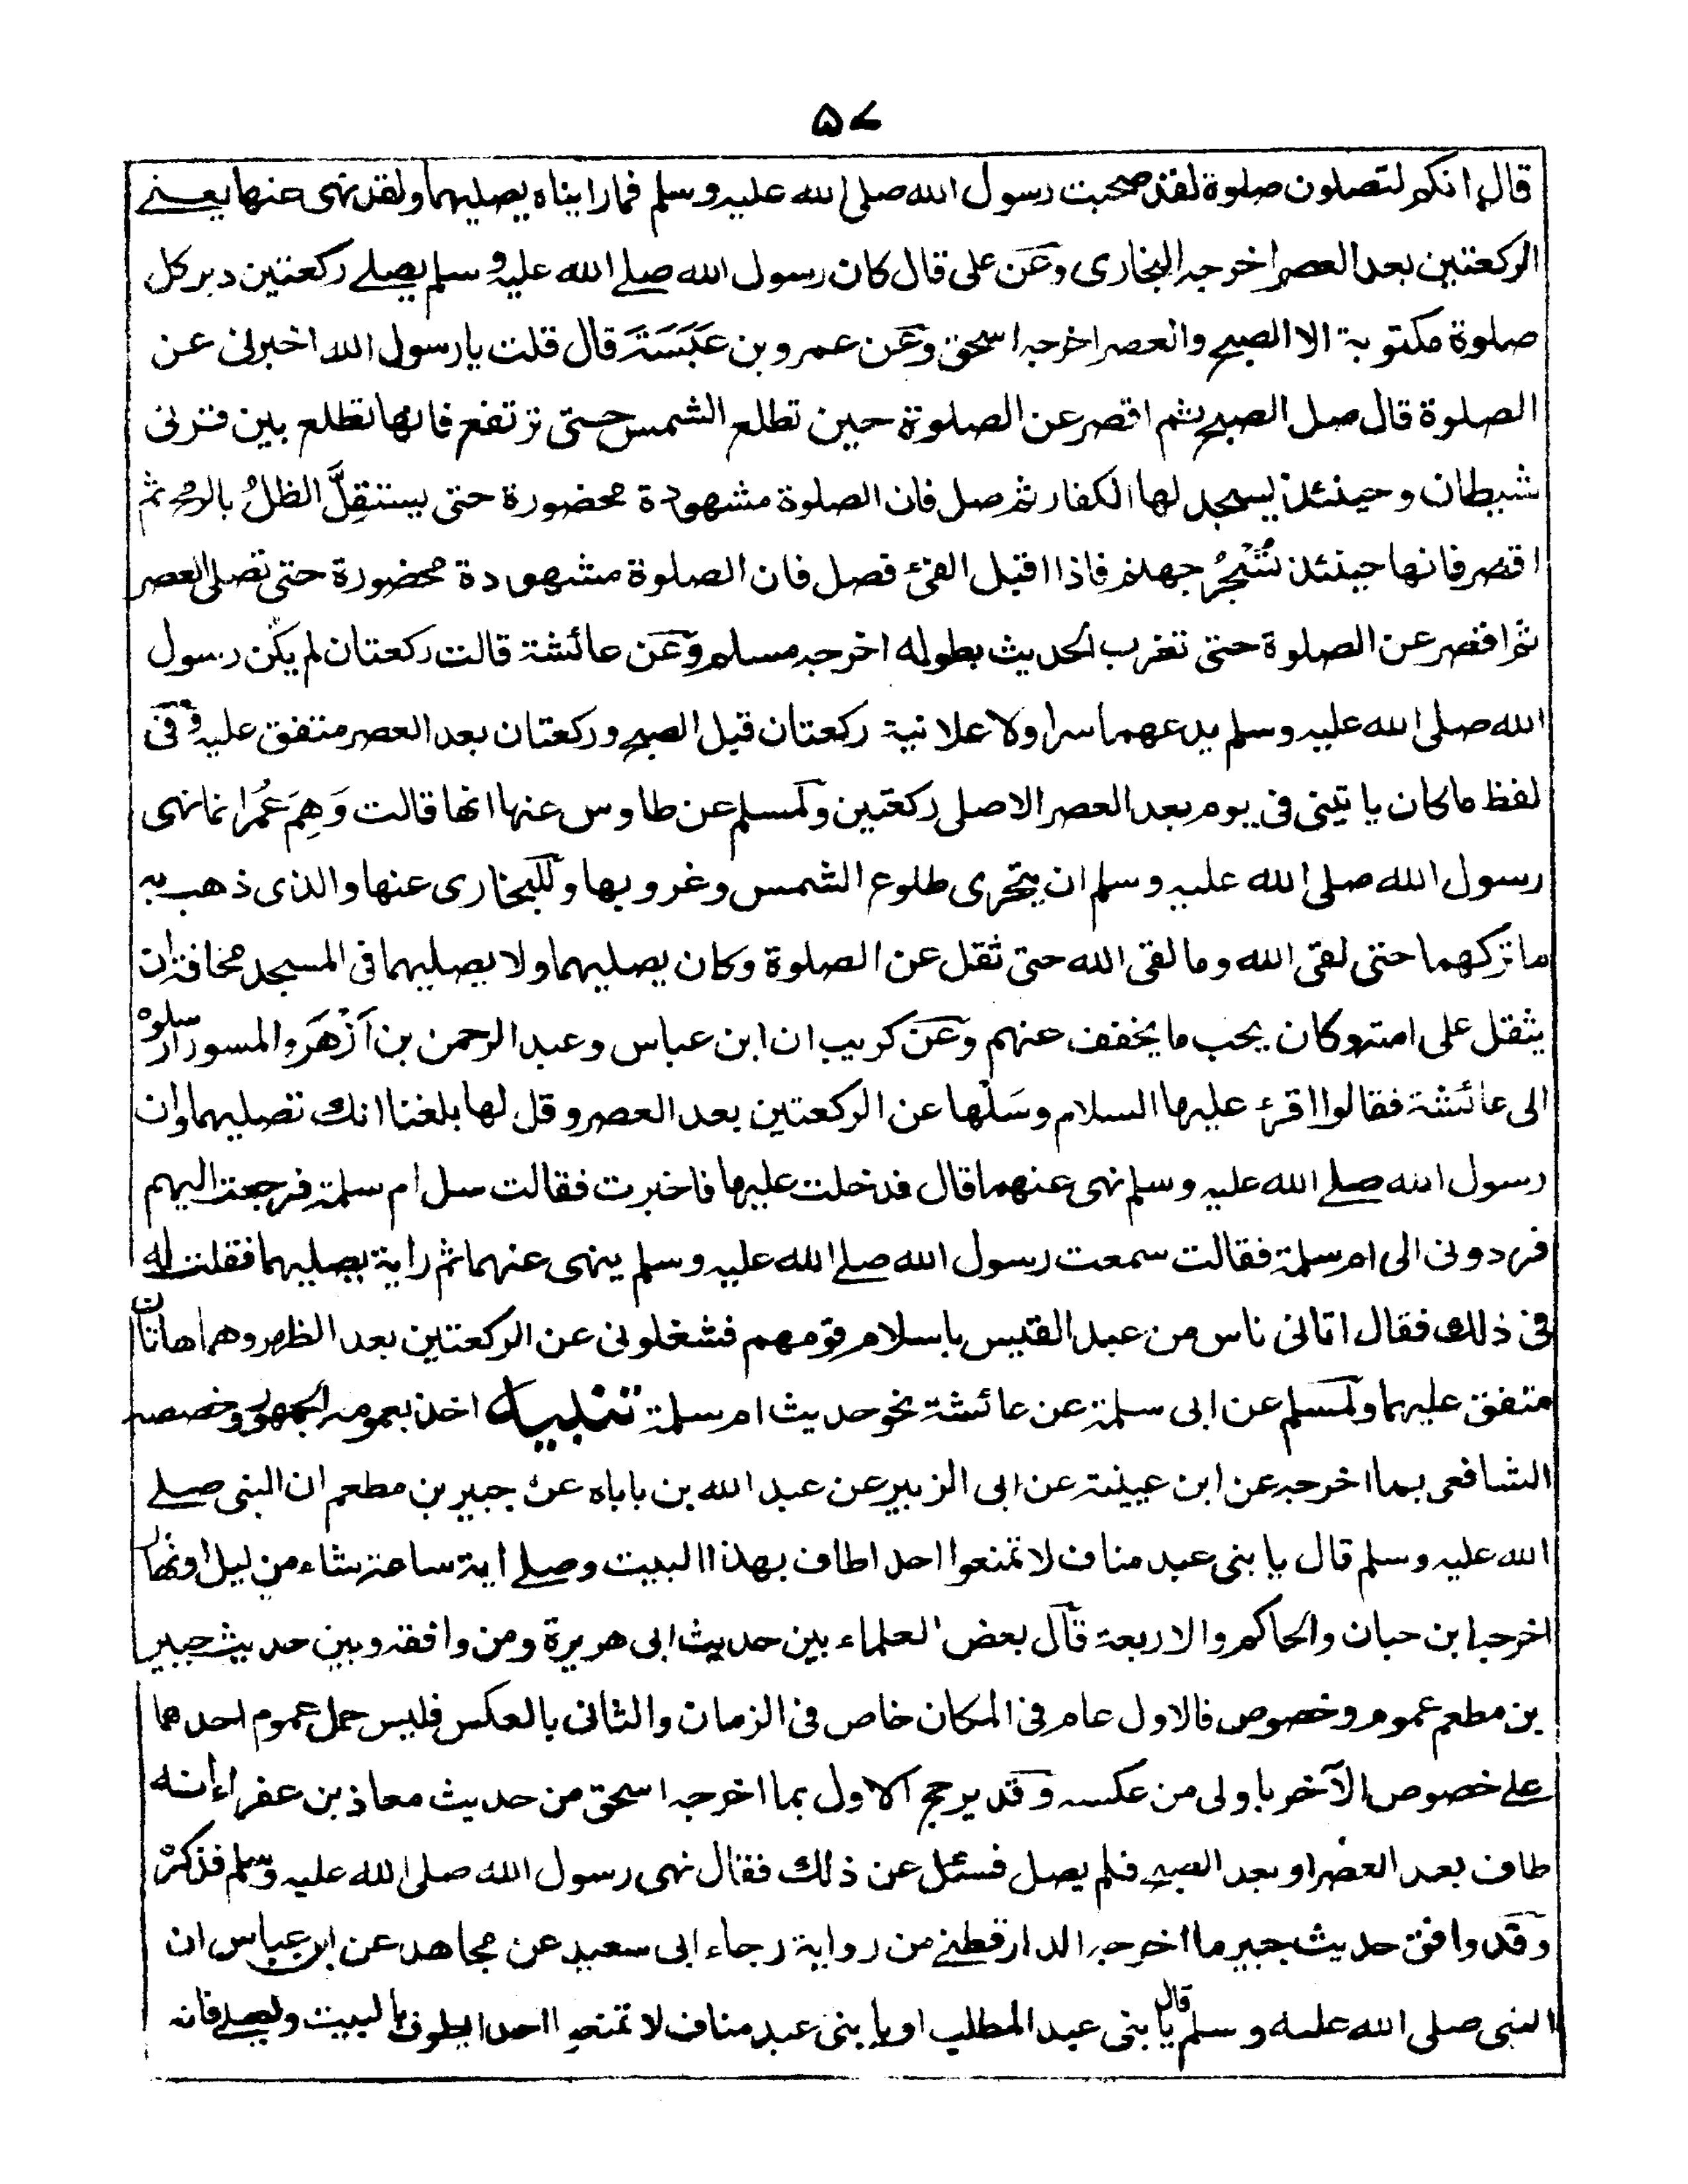 ۵۷
قال انكم لتصلون صلوة لقد صحبت رسول الله صلى الله عليه وسلم فما رايناه يصليهما ولقد نهى عنها يعنے
الركعتين بعد العصر اخرجه البخارى وعن على قال كان رسول الله صلے الله عليه وسلم يصلے ركعتين دبر كل
صلوة مكتوبة الا الصبح والعصر اخرجه اسحق وعن عمرو بن عَبَسَةَ قال قلت يا رسول الله اخبرنى عن
الصلوة قال صل الصبح ثم اقصر عن الصلوة حين تطلع الشمس حتى ترتفع فانها تطلع بين قرنى
شيطان وحينئذ يسجد لها الكفار ثم صل فان الصلوة مشهودة محضورة حتى يستقِلَّ الظلُ بالرمح ثم
اقصر فانها حينئذ تُسْجَرُ جهنم فاذا اقبل الفئ فصل فان الصلوة مشهودة محضورة حتى تصلى العصر
ثم اقصر عن الصلوة حتى تغرب الحديث بطوله اخرجه مسلم وعن عائشة قالت ركعتان لم يكن رسول
الله صلى الله عليه وسلم يدعهما سرا ولا علانية ركعتان قبل الصبح وركعتان بعد العصر متفق عليه وفى
لفظ ما كان ياتينى فى يوم بعد العصر الا صلى ركعتين ولمسلم عن طاوس عنها انها قالت وَهِمَ عُمَرُ انما نهى
رسول الله صلى الله عليه وسلم ان يتحرى طلوع الشمس وغروبها وللبخارى عنها والذى ذهب به
ما تركهما حتى لقى الله وما لقى الله حتى ثقل عن الصلوة وكان يصليهما ولا يصليهما فى المسجد مخافة ان
يثقل على امته وكان يحب ما يخفف عنهم وعن كريب ان ابن عباس وعبد الرحمن بن اَزْهَر والمسور ارسلوه
الى عائشة فقالوا اقرء عليها السلام وسَلْها عن الركعتين بعد العصر وقل لها بلغنا انك تصليهما وان
رسول الله صلے الله عليه وسلم نهى عنهما قال فدخلت عليها فاخبرت فقالت سل ام سلمة فرجعت اليهم
فردونى الى ام سلمة فقالت سمعت رسول الله صلے الله عليه وسلم ينهى عنهما ثم راية يصليهما فقلت له
فى ذلك فقال اتانى ناس من عبد القيس باسلام قومهم فشغلونى عن الركعتين بعد الظهر وهما هاتان
متفق عليهما ولمسلم عن ابى سلمة عن عائشة نحو حديث ام سلمة تنبيه اخذ بعمومه الجمهور وخصصه
الشافعى بما اخرجه عن ابن عيينة عن ابى الزبير عن عبد الله بن باباه عن جبير بن مطعم ان النبى صلے
الله عليه وسلم قال يا بنى عبد مناف لا تمنعوا احدا طاف بهذا البيت وصلے اية ساعة شاء من ليل او نهار
اخرجه ابن حبان والحاكم والاربعة قال بعض العلماء بين حديث ابى هريرة ومن وافقه وبين حديث جبير
بن مطعم عموم وخصوص فالاول عام فى المكان خاص فى الزمان والثانى بالعكس فليس حمل عموم احدهما
علے خصوص الآخر باولى من عكسه وقد يرجح الاول بما اخرجه اسحق من حديث معاذ بن عفراء انه
طاف بعد العصر او بعد الصبح فلم يصل فسئل عن ذلك فقال نهى رسول الله صلى الله عليه وسلم فذكره
وقد وافق حديث جبير ما اخرجه الدارقطنے من رواية رجاء ابى سعيد عن مجاهد عن ابن عباس ان
النبى صلى الله عليه وسلم قال يا بنى عبد المطلب او يا بنى عبد مناف لا تمنعوا احدا يطوف بالبيت ويصلے فانه